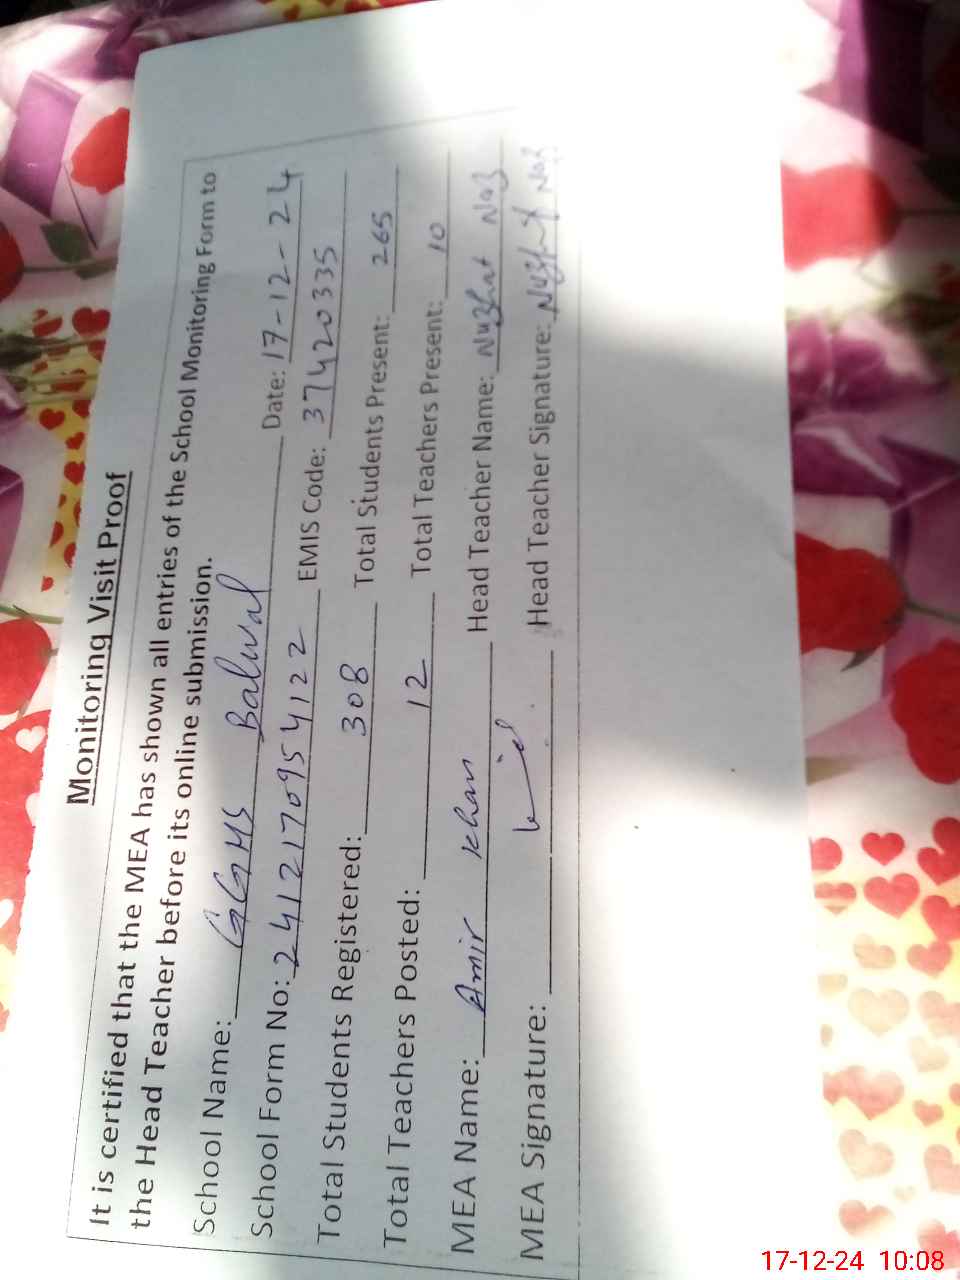 Monitoring Visit Proof
It is certified that the MEA has shown all entries of the School Monitoring Form to
the Head Teacher before its online submission.
School Name: GGMS Balwal Date: 17-12-24
School Form No: 2412170954122 EMIS Code: 37420335
Total Students Registered: 308 Total Students Present: 265
Total Teachers Posted: 12 Total Teachers Present: 10
MEA Name: Amir Khan Head Teacher Name: Nuzhat Naz
MEA Signature: Head Teacher Signature: Nuzhat Naz
17-12-24 10:08